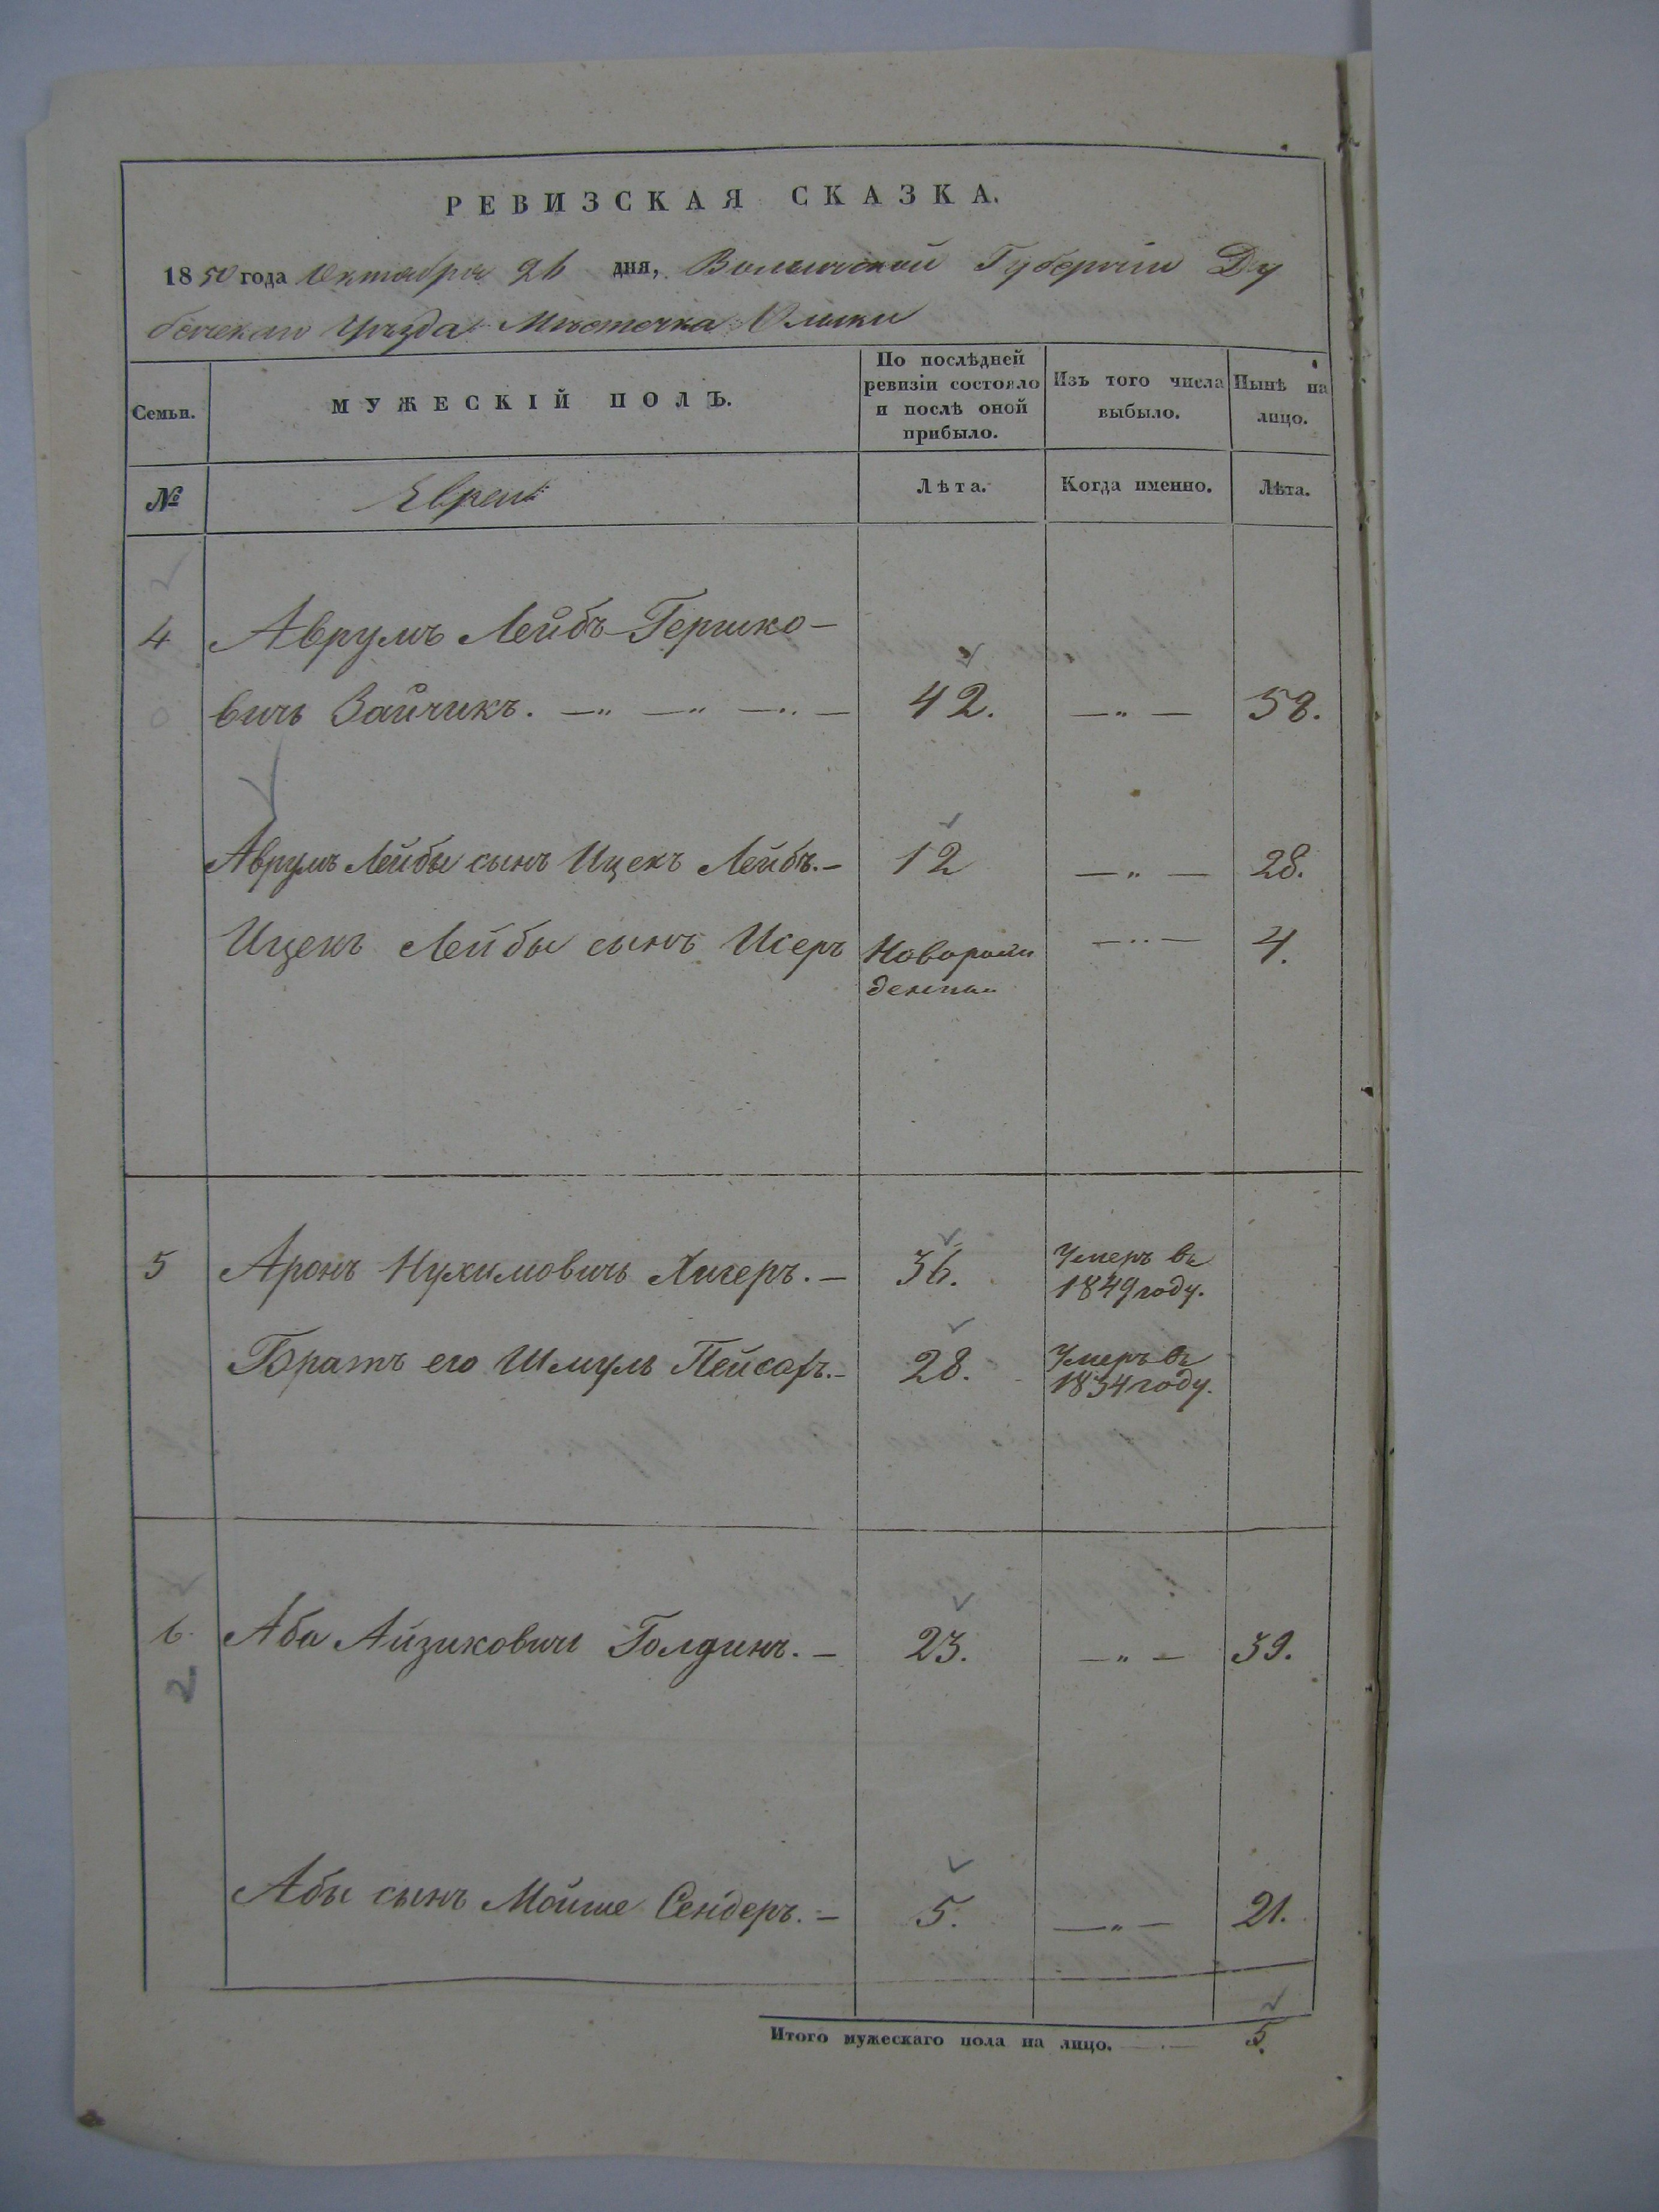 РЕВИЗСКАЯ СКАЗКА.
1850 года Октября 26 дня, Волынской Губерніи Ду
бенскаго Уѣзда Мѣстечка Олыки
Семьи.
МУЖЕСКІЙ ПОЛЪ.
По послѣдней ревизіи состояло и послѣ оной прибыло.
Изъ того числа выбыло.
Нынѣ на лицо.
№ Евреи Лѣта. Когда именно. Лѣта.
4 Аврумъ Лейбъ Гершко-
вичъ Зайчикъ. —„ —„ —„ — 42. —„— 58.
Аврумъ Лейбы сынъ Ицекъ Лейбъ.— 12 —„— 28.
Ицекъ Лейбы сынъ Исеръ Новорож —„— 4.
денный
5 Аронъ Нухимовичъ Хигеръ.— 36. Умеръ въ
1849 году.
Братъ его Шмуль Пейсахъ.— 28. Умеръ въ
1834 году.
6. Аба Айзиковичъ Голдинъ.— 23. —„— 39.
2
Абы сынъ Мойше Сендеръ.— 5. —„— 21.
Итого мужескаго пола на лицо. — 5.